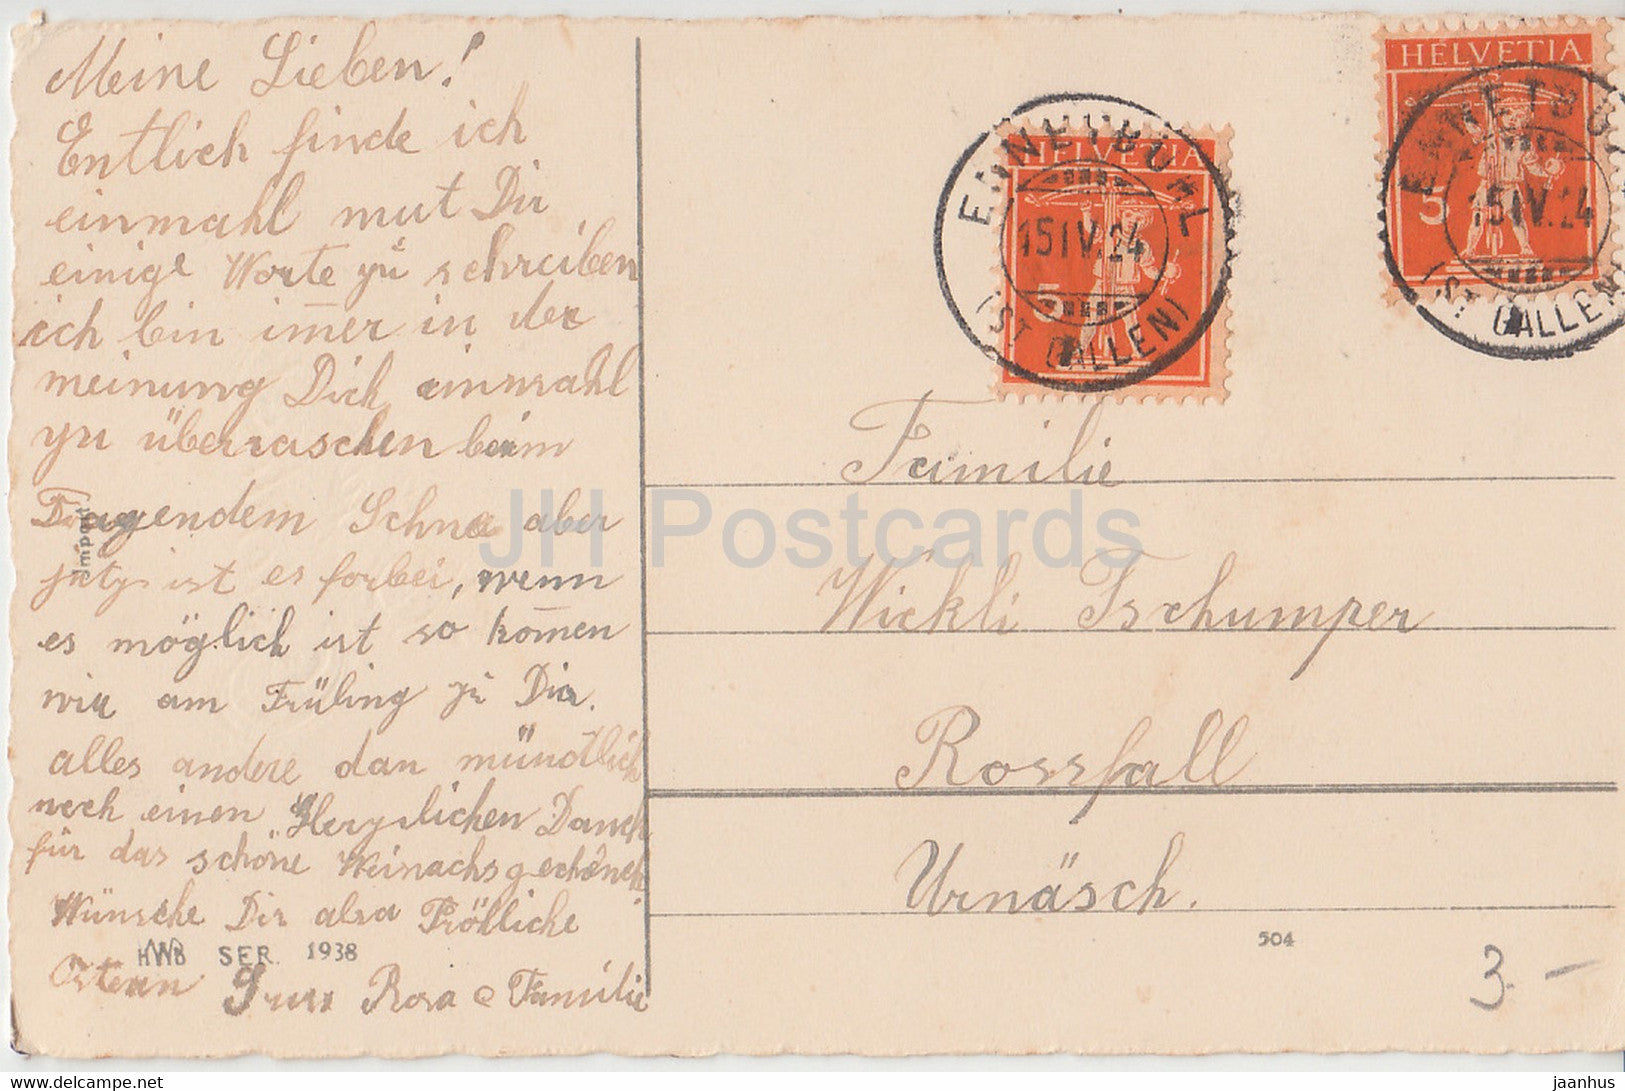 Meine Lieben!
Entlich finde ich
einmahl mut Dir
einige Worte zu schreiben
ich bin im̅er in der
meinung Dich einmahl
zu überraschen beim
Tragendem Schne aber
jetz ist es forbei, wenn
es möglich ist so kom̅en
wir am Früling zu Dir.
alles andere dan mündlich
noch einen Herzlichen Danck
für das schöne Weinachsgeschenck.
Wünsche Dir alsa Fröhliche
Ostern Gruss Rosa & Familie
Import
HWB SER. 1938
HELVETIA
5
ENNETBÜHL
15.IV.24
(ST. GALLEN)
HELVETIA
5
ENNETBÜHL
15.IV.24
(ST. GALLEN)
Familie
Wickli Tschumper
Rossfall
Urnäsch.
504
3.–
JH Postcards
www.delcampe.net
jaanhus